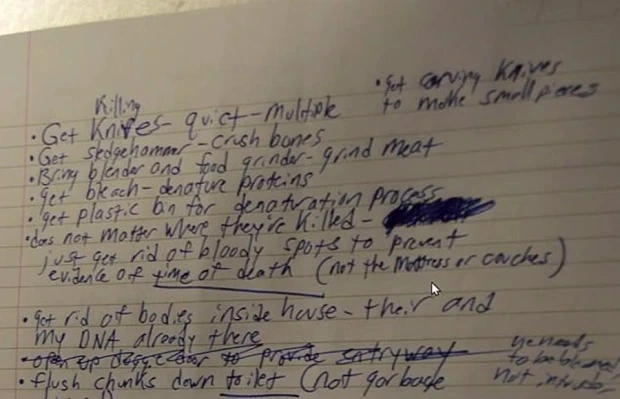 Killing
• Get Knives - quiet - multiple
• Get carving Knives
to make small pieces
• Get sledgehammer - crush bones
• Bring blender and food grinder - grind meat
• get bleach - denature proteins
• get plastic bin for denaturation process
• does not matter where they're killed -
just get rid of bloody spots to prevent
evidence of time of death (not the mattress or couches)
• get rid of bodies inside house - their and
my DNA already there
• open up doggie door to provide entryway
to be blamed,
not
• flush chunks down toilet (not garbage